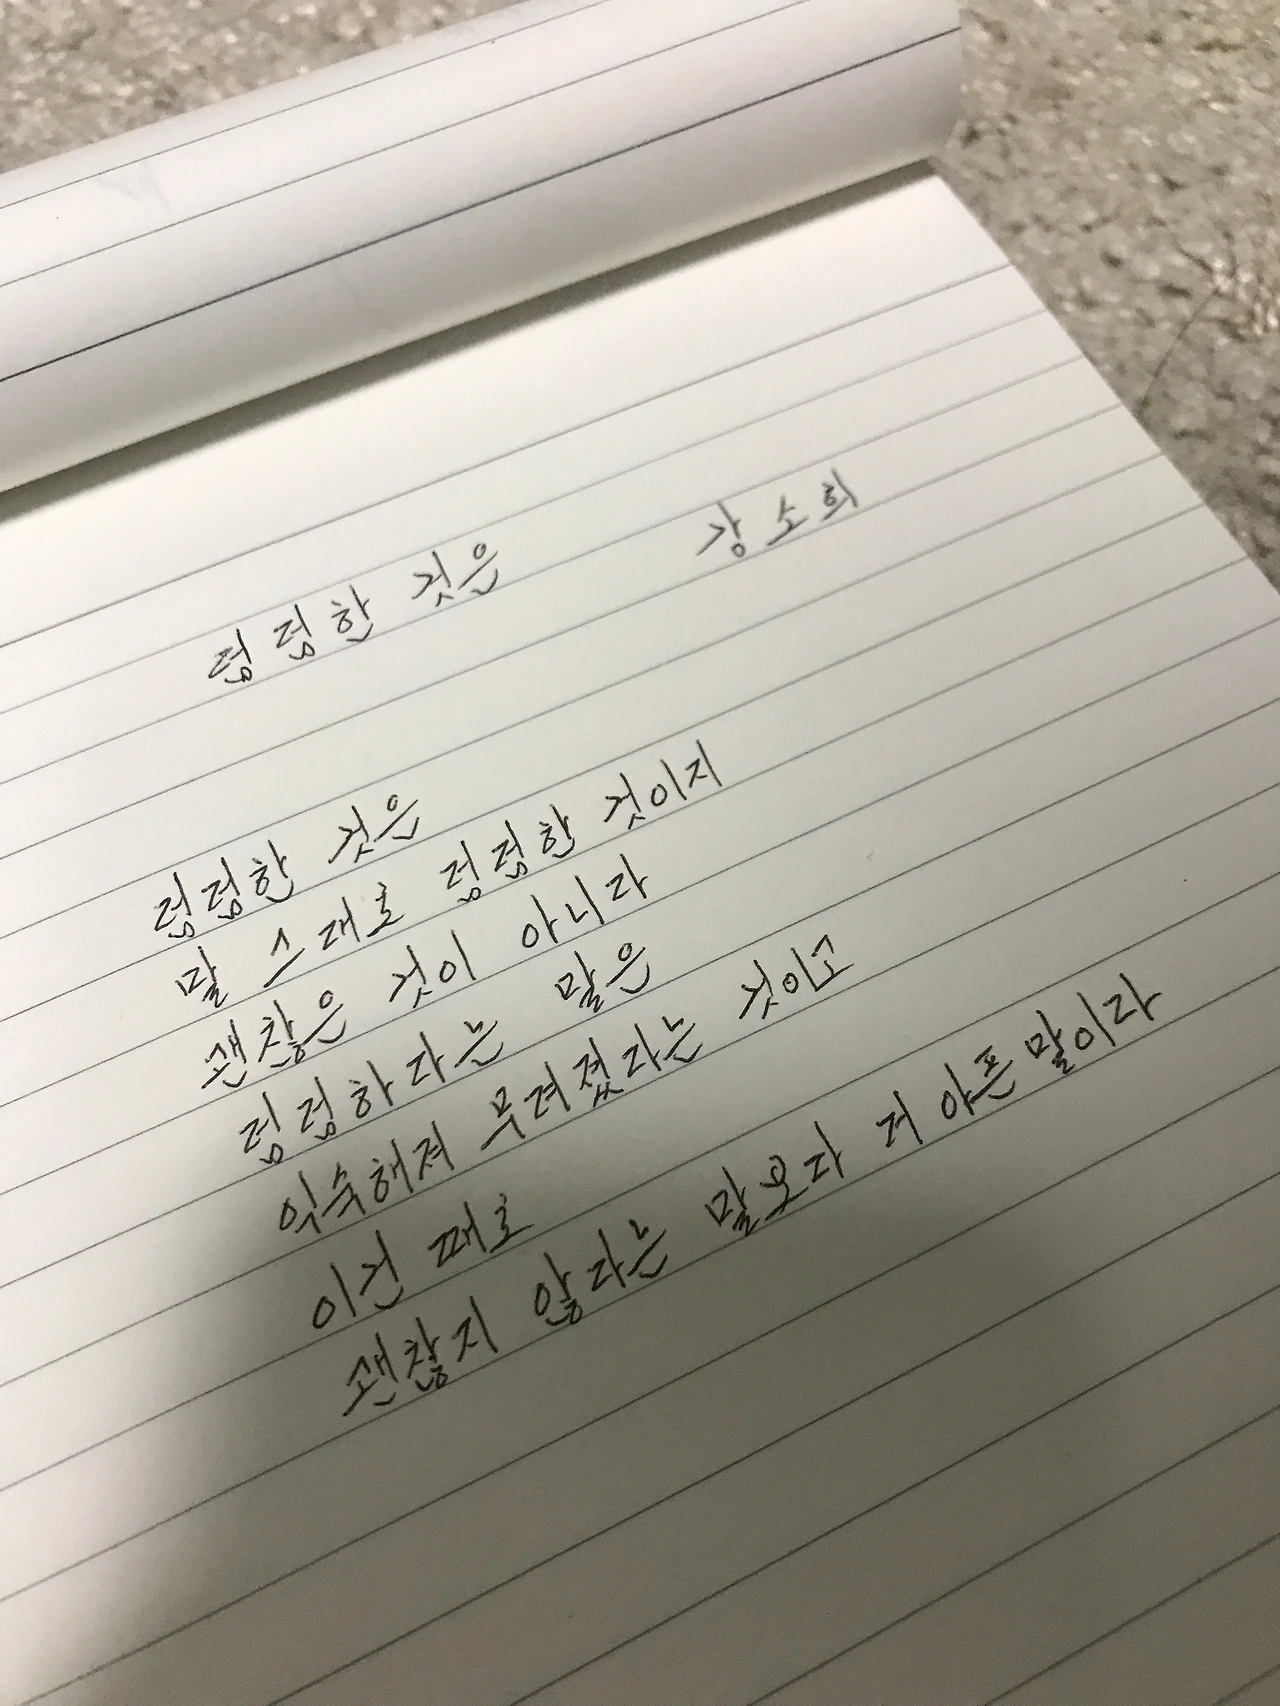 덤덤한 것은 강소희
덤덤한 것은
말 그대로 덤덤한 것이지
괜찮은 것이 아니라
덤덤하다는 말은
익숙해져 무뎌졌다는 것이고
이건 때로
괜찮지 않다는 말보다 더 아픈 말이라